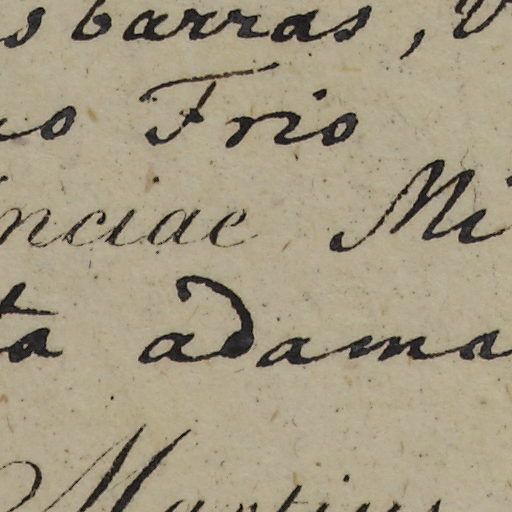 s barras, V
o Frio
nciae Mi
ta adama
Martius